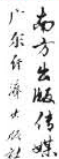 南方出版传媒
广东经济出版社